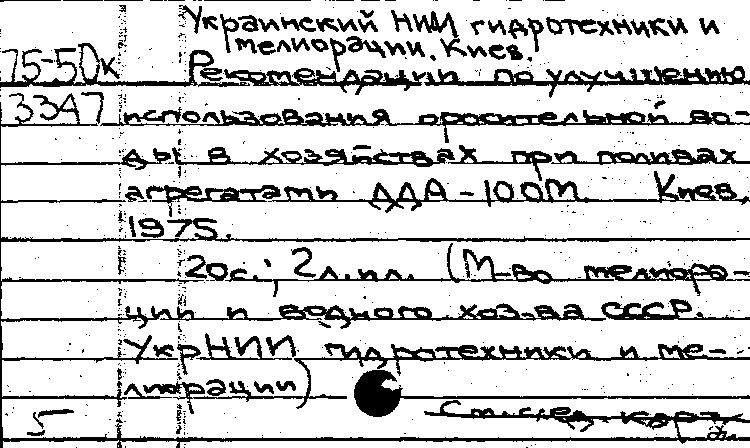 Украинский НИИ гидротехники и
мелиорации. Киев.
75-50к Рекомендации по улучшению
3347 использования оросительной во-
ды в хозяйствах при поливах
агрегатами ДДА-100М. Киев,
1975.
20с.; 2л.ил. (М-во мелиора-
ции и водного хоз-ва СССР.
УкрНИИ гидротехники и ме-
лиорации)
5 См. след. карт.